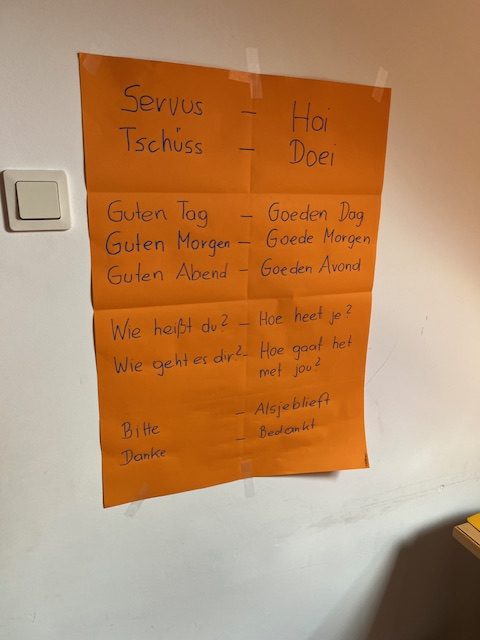 Servus - Hoi
Tschüss - Doei
Guten Tag - Goeden Dag
Guten Morgen - Goede Morgen
Guten Abend - Goeden Avond
Wie heißt du? - Hoe heet je?
Wie geht es dir? - Hoe gaat het
met jou?
Bitte - Alsjeblieft
Danke - Bedankt